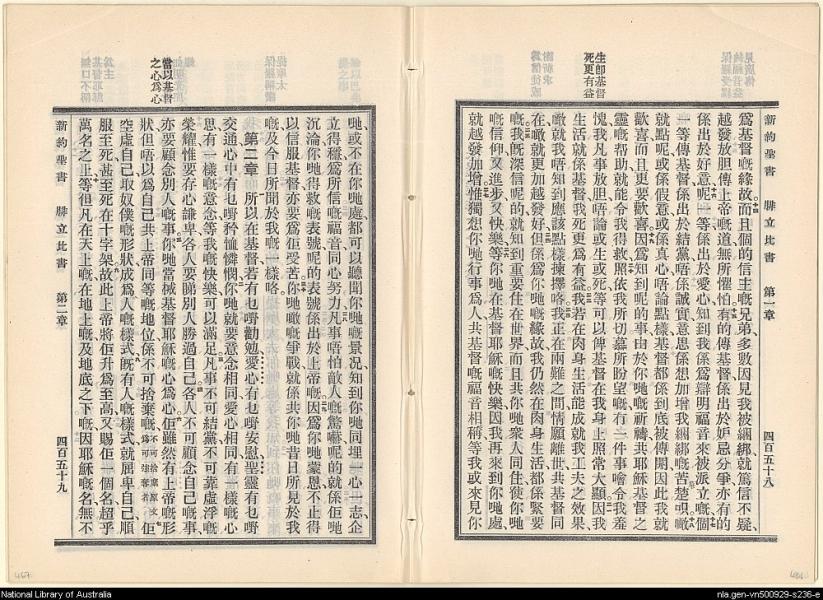 生卽基督
死更有益
新約聖書 腓立比書 第一章 四百五十八
爲基督嘅緣故而且個的信主嘅兄弟多數因見我被綑綁就爲信不疑
越發放胆傳上帝嘅道無所懼怕有的傳基督係出於妒忌分爭亦有的
係出於好意呢一等係出於愛心知到我係爲辯明福音來被派立嘅個
一等傳基督係出於結黨唔係誠實意思係想加增我綑綁嘅苦楚唄噉
就點呢或係假意或係真心唔論點樣基督都係到底被傳開因此我就
歡喜而且更要歡喜因爲知到呢的事由於你哋嘅祈禱共耶穌基督之
靈嘅帮助就能令我得救照依我所切慕所盼望嘅冇一件事噲令我羞
愧我凡事放胆唔論或生或死等可以俾基督在我身上照常大顯因我
生活就係基督我死更爲有益我若在肉身生活能成就我工夫之效果
噉就我唔知到應該點樣揀擇咯我正在兩難之間情願離世共基督同
在噉就更加越發好但係爲你哋嘅緣故我仍然在肉身生活都係緊要
嘅我旣深信呢的就知到重要住在世界而且共你哋衆人同住使你哋
嘅信仰又進步又快樂等你哋在基督耶穌嘅快樂因我再來到你哋處
就越發加增惟獨想你哋行事爲人共基督嘅福音相稱等我或來見你
當以基督
之心爲心
哋或不在你哋處都可以聽聞你哋嘅景況知到你哋同埋一心一志企
立得穩爲所信嘅福音同心努力凡事唔怕敵人嘅驚嚇呢的就係佢哋
沉淪你哋得救嘅表號呢的表號係出於上帝嘅因爲你哋蒙恩不止得
以信服基督亦要爲佢受苦你哋噉樣嘅爭戰就係共你哋昔日所見於我
嘅及今日所聞於我嘅一樣咯
第二章 所以在基督若有乜嘢勸勉愛心有乜嘢安慰聖靈有乜嘢
交通心中有乜嘢矜恤憐憫你哋就要意念相同愛心相同有一樣嘅心
思有一樣嘅意念等我嘅快樂可以滿足凡事不可結黨不可靠虛浮嘅
榮耀惟要存心謙卑各人要睇別人勝過自己各人不可顧念自己嘅事
亦要顧念別人嘅事你哋當械基督耶穌嘅心爲心佢雖然有上帝嘅形
狀但唔以爲自己共上帝同等嘅地位係不可捨棄嘅不可捨棄原文爲不可強奪者佢
空虛自己取奴僕嘅形狀成爲人嘅樣式旣有人嘅樣式就屈卑自己順
服至死甚至死在十字架故此上帝將佢升爲至高又賜佢一個名超乎
萬名之上等但凡在天上嘅在地土嘅及地底之下嘅因耶穌嘅名無不
新約聖書 腓立比書 第二章 四百五十九
467
National Library of Australia
nla.gen-vn500929-s236-e